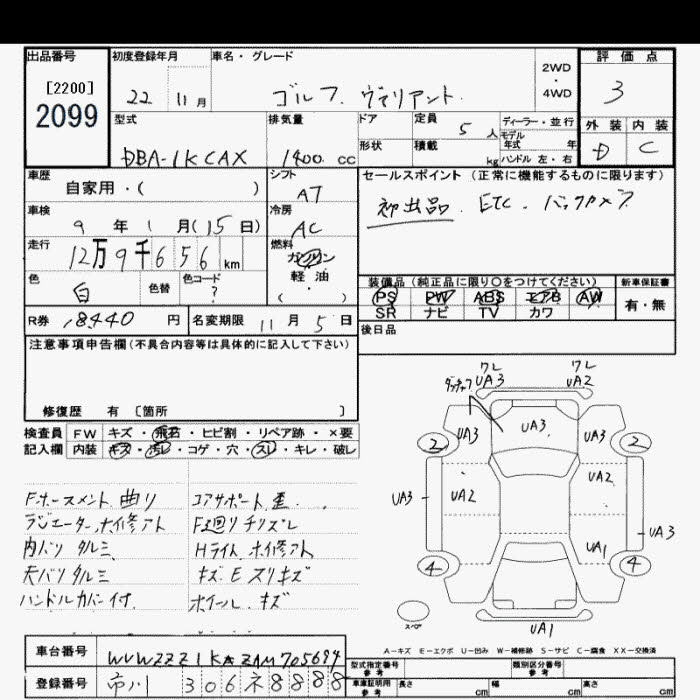 出品番号 初度登録年月 車名・グレード 2WD・4WD 評価点
[2200] 2099 22 11月 ゴルフ ヴァリアント 3
型式 排気量 ドア 定員 5人 ディーラー・並行 外装 内装
モデル年式 年
DBA-1KCAX 1400 cc 形状 積載 kg ハンドル 左・右 D C
車歴 シフト セールスポイント (正常に機能するものに限ります)
自家用・( ) AT
初出品. ETC. バックカメラ
車検 冷房
9年1月(15日) AC
走行 燃料
12万9千656km ガソリン
軽油
(・)
色 色替 色コード
白 ?
装備品 (純正品に限り○をつけてください) 新車保証書
PS PW ABS エアB AW 有・無
SR ナビ TV カワ
R券 18440円 名変期限 11月5日
後日品
注意事項申告欄(不具合内容等は具体的に記入して下さい)
修復歴 有 〔箇所 〕
検査員 FW キズ・飛石・ヒビ割・リペア跡・×要
記入欄 内装 キズ・汚レ・コゲ・穴・スレ・キレ・破レ
F.ホースメント 曲り コアサポート 歪.
ラジエーター.ホ修アト F廻りチリズレ
内バリ タルミ Hライト ホ修アト
天バリ タルミ キズ E スリキズ
ハンドルカバー付. ホイール キズ
ワレ ワレ
UA3 UA2
UA3 UA3 UA3
2 2
UA3 UA2 UA2
UA3
UA1
4 4
スペア
UA1
A-キズ E-エクボ U-凹み W-補修跡 S-サビ C-腐食 XX-交換済
車台番号 WVWZZZ1KZAM705694
型式指定番号 参考 類別区分番号 参考
登録番号 市川 306 ネ 8888
車庫証明用 参考 長さ cm 幅 cm 高さ cm